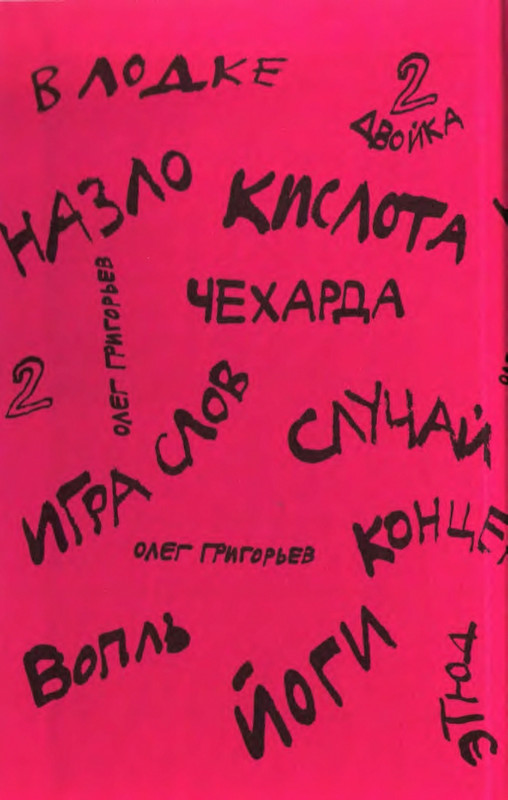 В ЛОДКЕ
2
ДВОЙКА
НАЗЛО
КИСЛОТА
ОЛЕГ ГРИГОРЬЕВ
ЧЕХАРДА
2
ИГРА СЛОВ
СЛУЧАЙ
ОЛЕГ ГРИГОРЬЕВ
КОНЦЕ
ВОПЛЬ
ЙОГИ
ЭТЮД